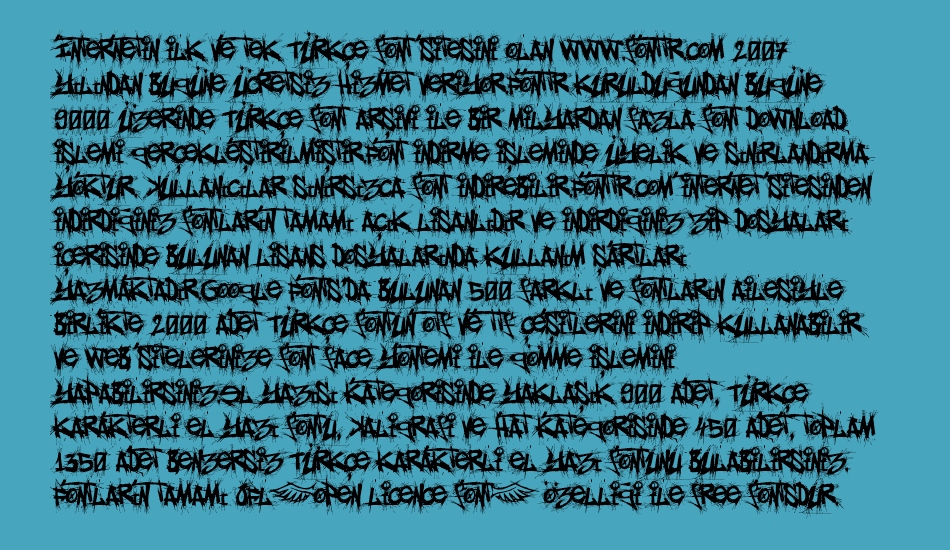 İnternetin ilk ve tek Türkçe font sitesini olan www.fontr.com 2007
yılından bugüne ücretsiz hizmet veriyor.Fontr kurulduğundan bugüne
9000 üzerinde Türkçe font arşini ile bir milyardan fazla font download
işlemi gerçekleştirilmiştir.Font indirme işleminde üyelik ve sınırlandırma
yoktur. Kullanıcılar sınırsızca font indirebilir.Fontr.com internet sitesinden
indirdiğiniz fontların tamamı açık lisanlıdır ve indirdiğiniz zip dosyaları
içerisinde bulunan lisans dosyalarında kullanım şartları
yazmaktadır.Google Fonts'da bulunan 500 farklı ve fontların ailesiyle
birlikte 2000 adet Türkçe font'un otf ve ttf çeşitlerini indirip kullanabilir
ve web sitelerinize font face yöntemi ile gömme işlemini
yapabilirsiniz.El yazısı kategorisinde yaklaşık 900 adet, Türkçe
karakterli el yazı fontu, Kaligrafi ve Hat kategorisinde 450 adet, toplam
1350 adet benzersiz Türkçe karakterli el yazı fontunu bulabilirsiniz.
Fontların tamamı OFL open licence font özelliği ile free fontsdur